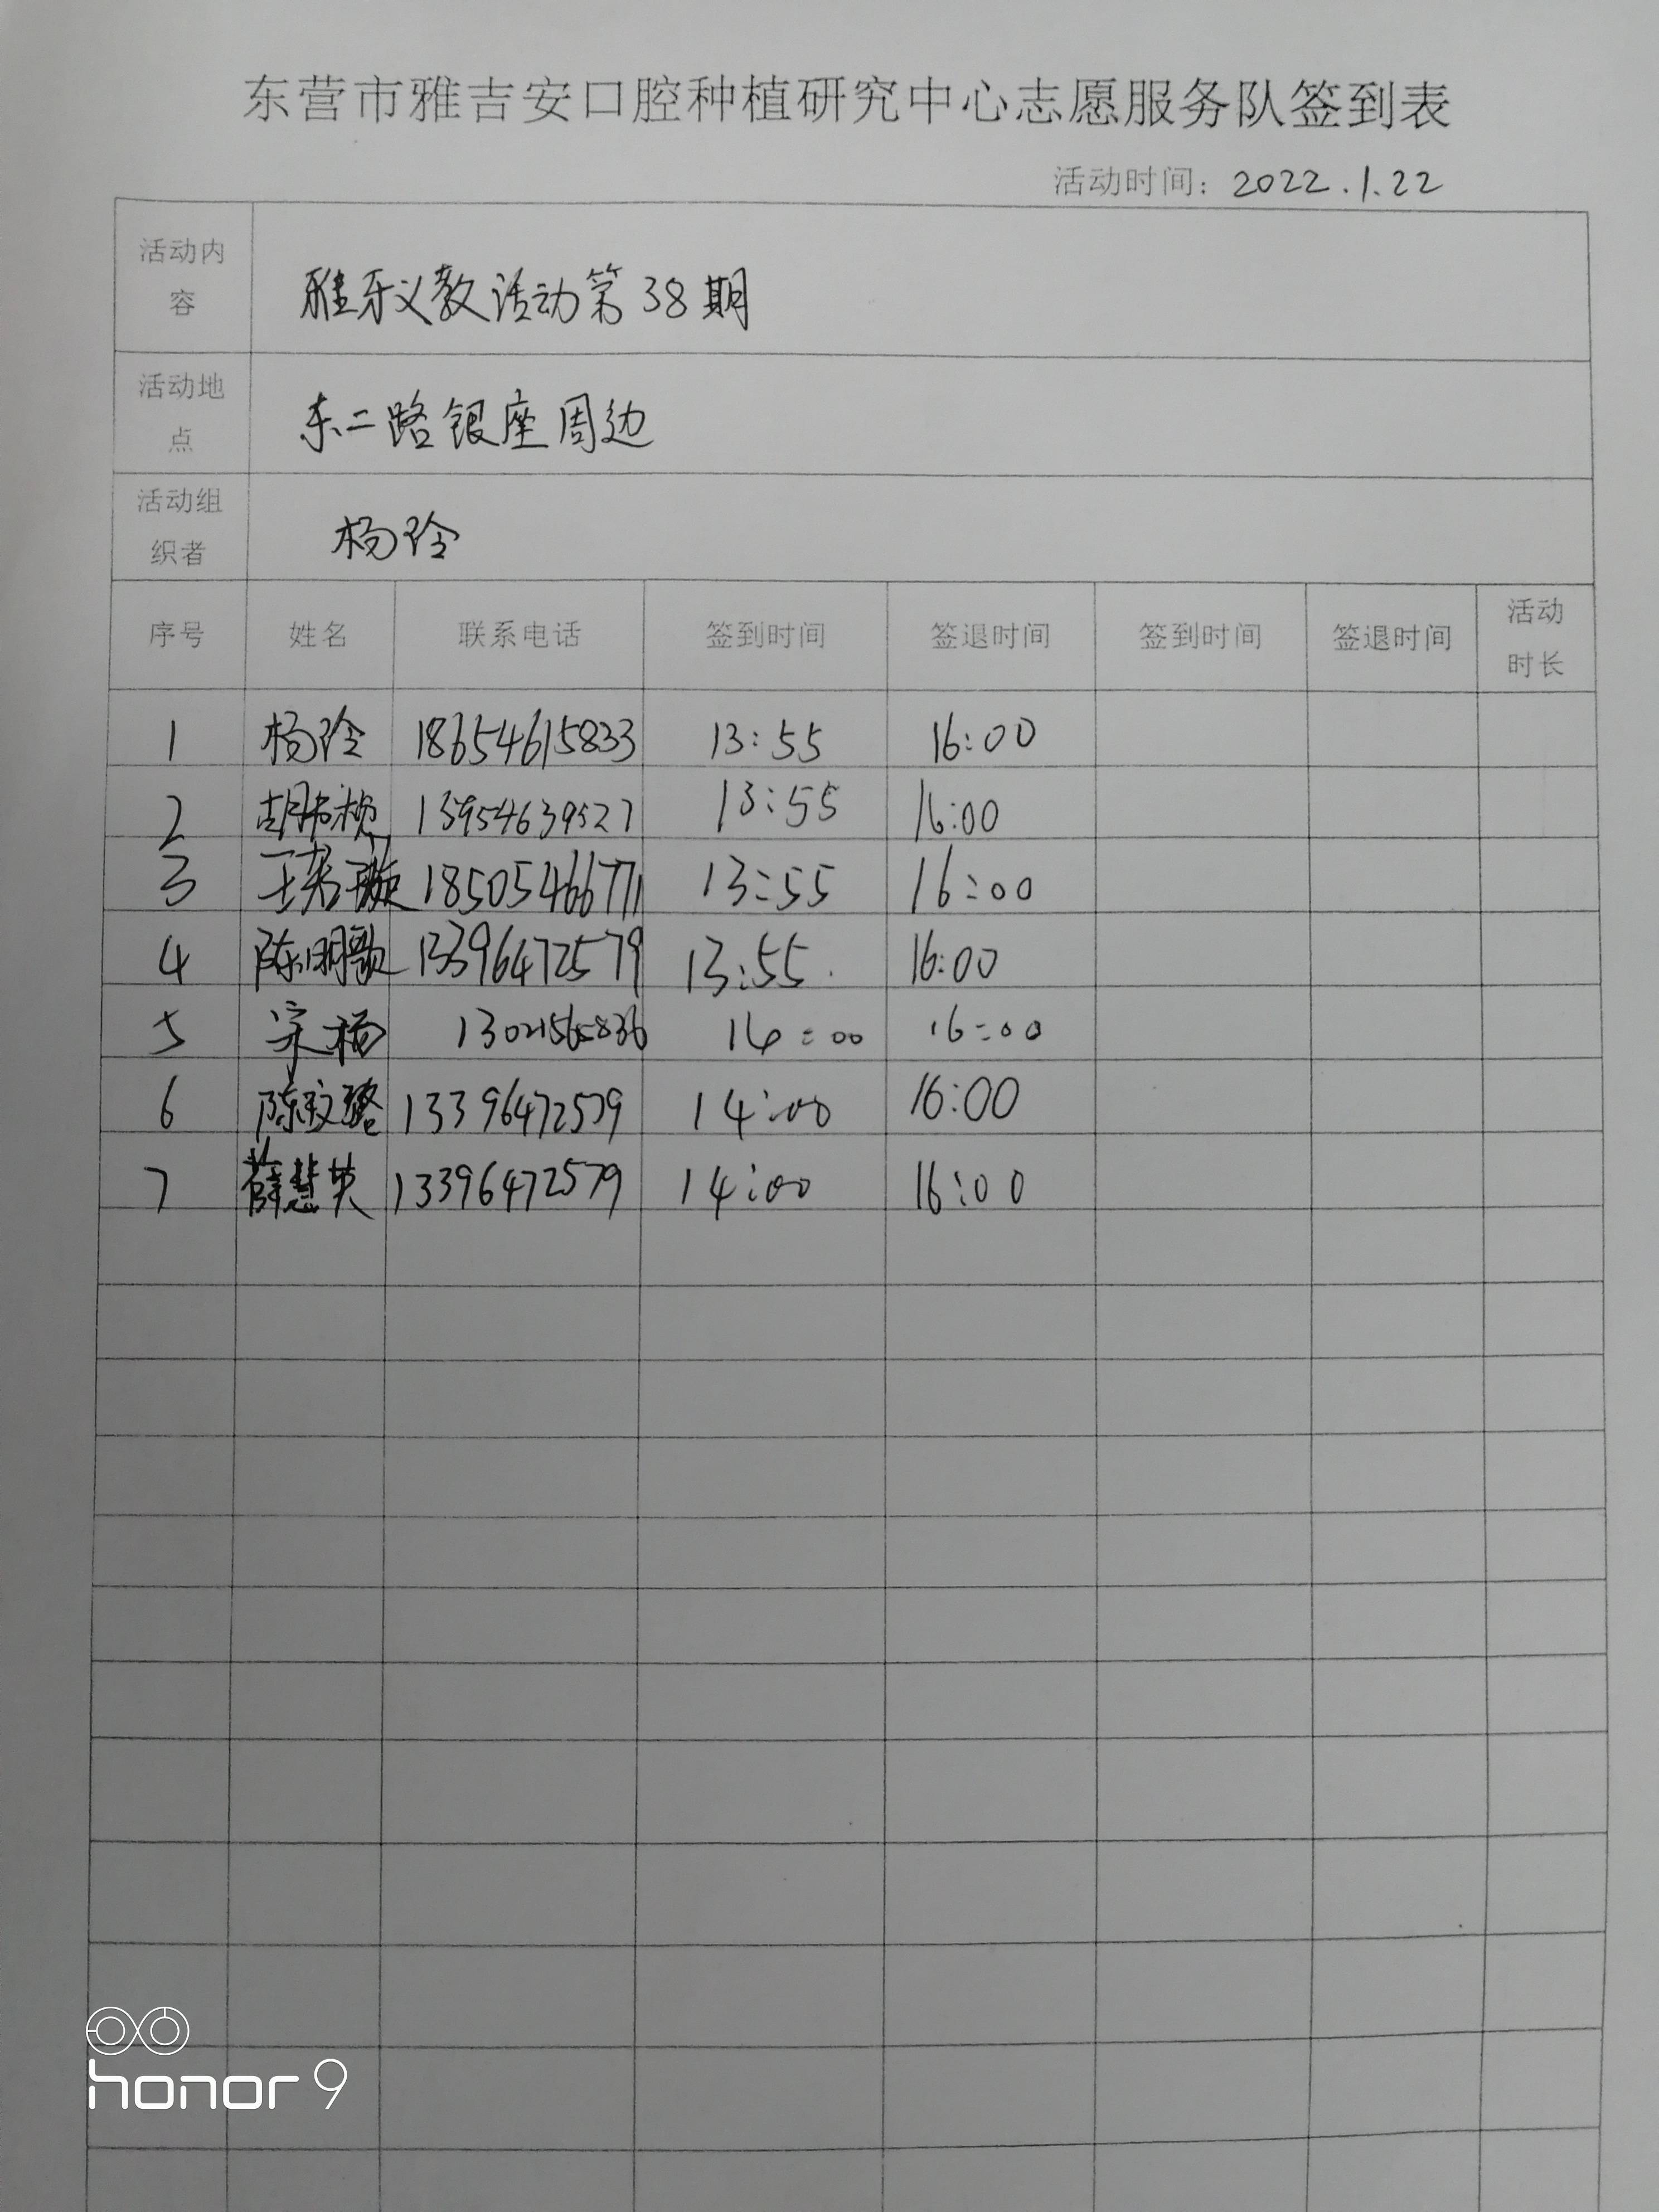 东营市雅吉安口腔种植研究中心志愿服务队签到表
活动时间：2022.1.22
活动内容 雅乐义教活动第38期
活动地点 东二路银座周边
活动组织者 杨玲
序号 姓名 联系电话 签到时间 签退时间 签到时间 签退时间 活动时长
1 杨玲 18654615833 13:55 16:00
2 13954639527 13:55 16:00
3 18505466771 13:55 16:00
4 陈明歌 13396472579 13:55 16:00
5 宋杨 13021565836 14:00 16:00
6 陈玟璐 13396472579 14:00 16:00
7 薛慧英 13396472579 14:00 16:00
honor 9